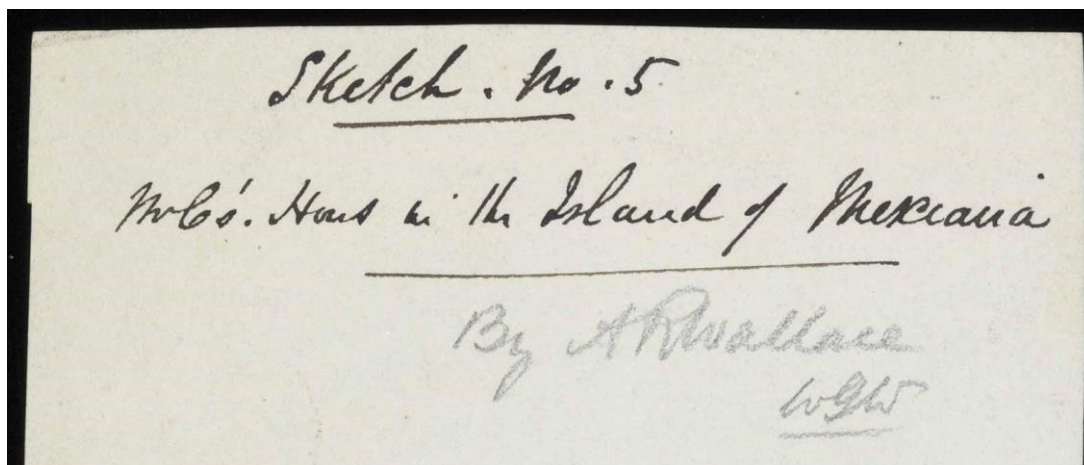 Sketch . No . 5
Mr C's. House in the Island of Mexiana
By A R Wallace
WGW